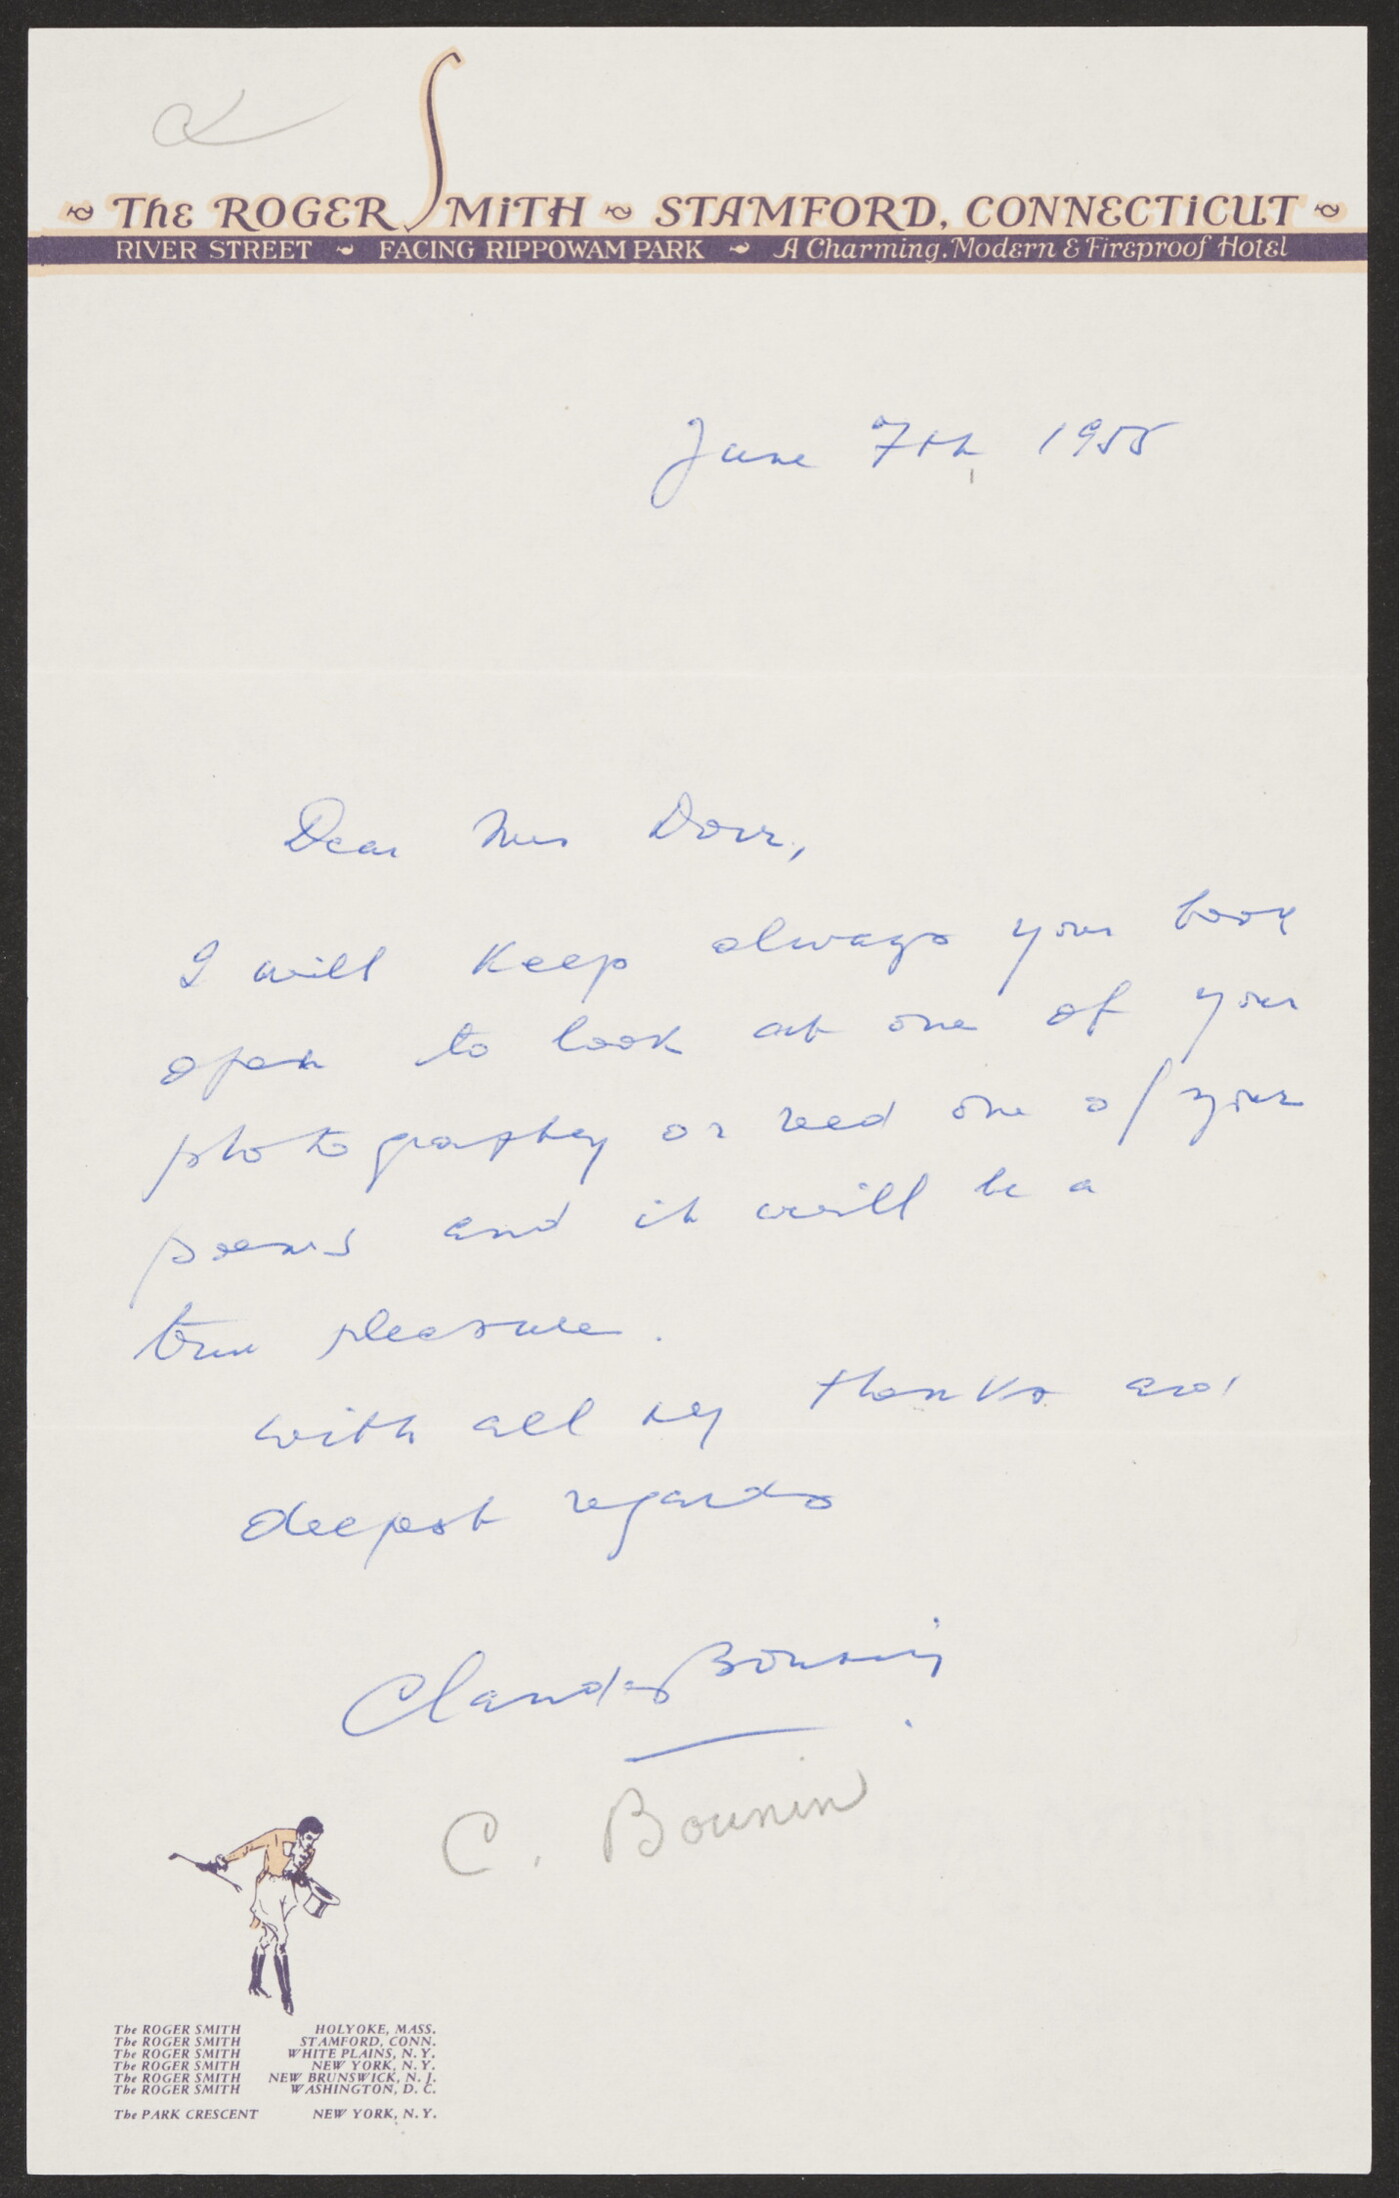 The ROGER SMITH STAMFORD, CONNECTICUT
RIVER STREET FACING RIPPOWAM PARK A Charming, Modern & Fireproof Hotel
June 7th, 1955
Dear Mrs Dorr,
I will keep always your book
open to look at one of your
photography or reed one of your
poems and it will be a
true pleasure.
with all my thanks and
deepest regards
Claude Bounin
C. Bounin
The ROGER SMITH HOLYOKE, MASS.
The ROGER SMITH STAMFORD, CONN.
The ROGER SMITH WHITE PLAINS, N.Y.
The ROGER SMITH NEW YORK, N.Y.
The ROGER SMITH NEW BRUNSWICK, N.J.
The ROGER SMITH WASHINGTON, D.C.
The PARK CRESCENT NEW YORK, N.Y.